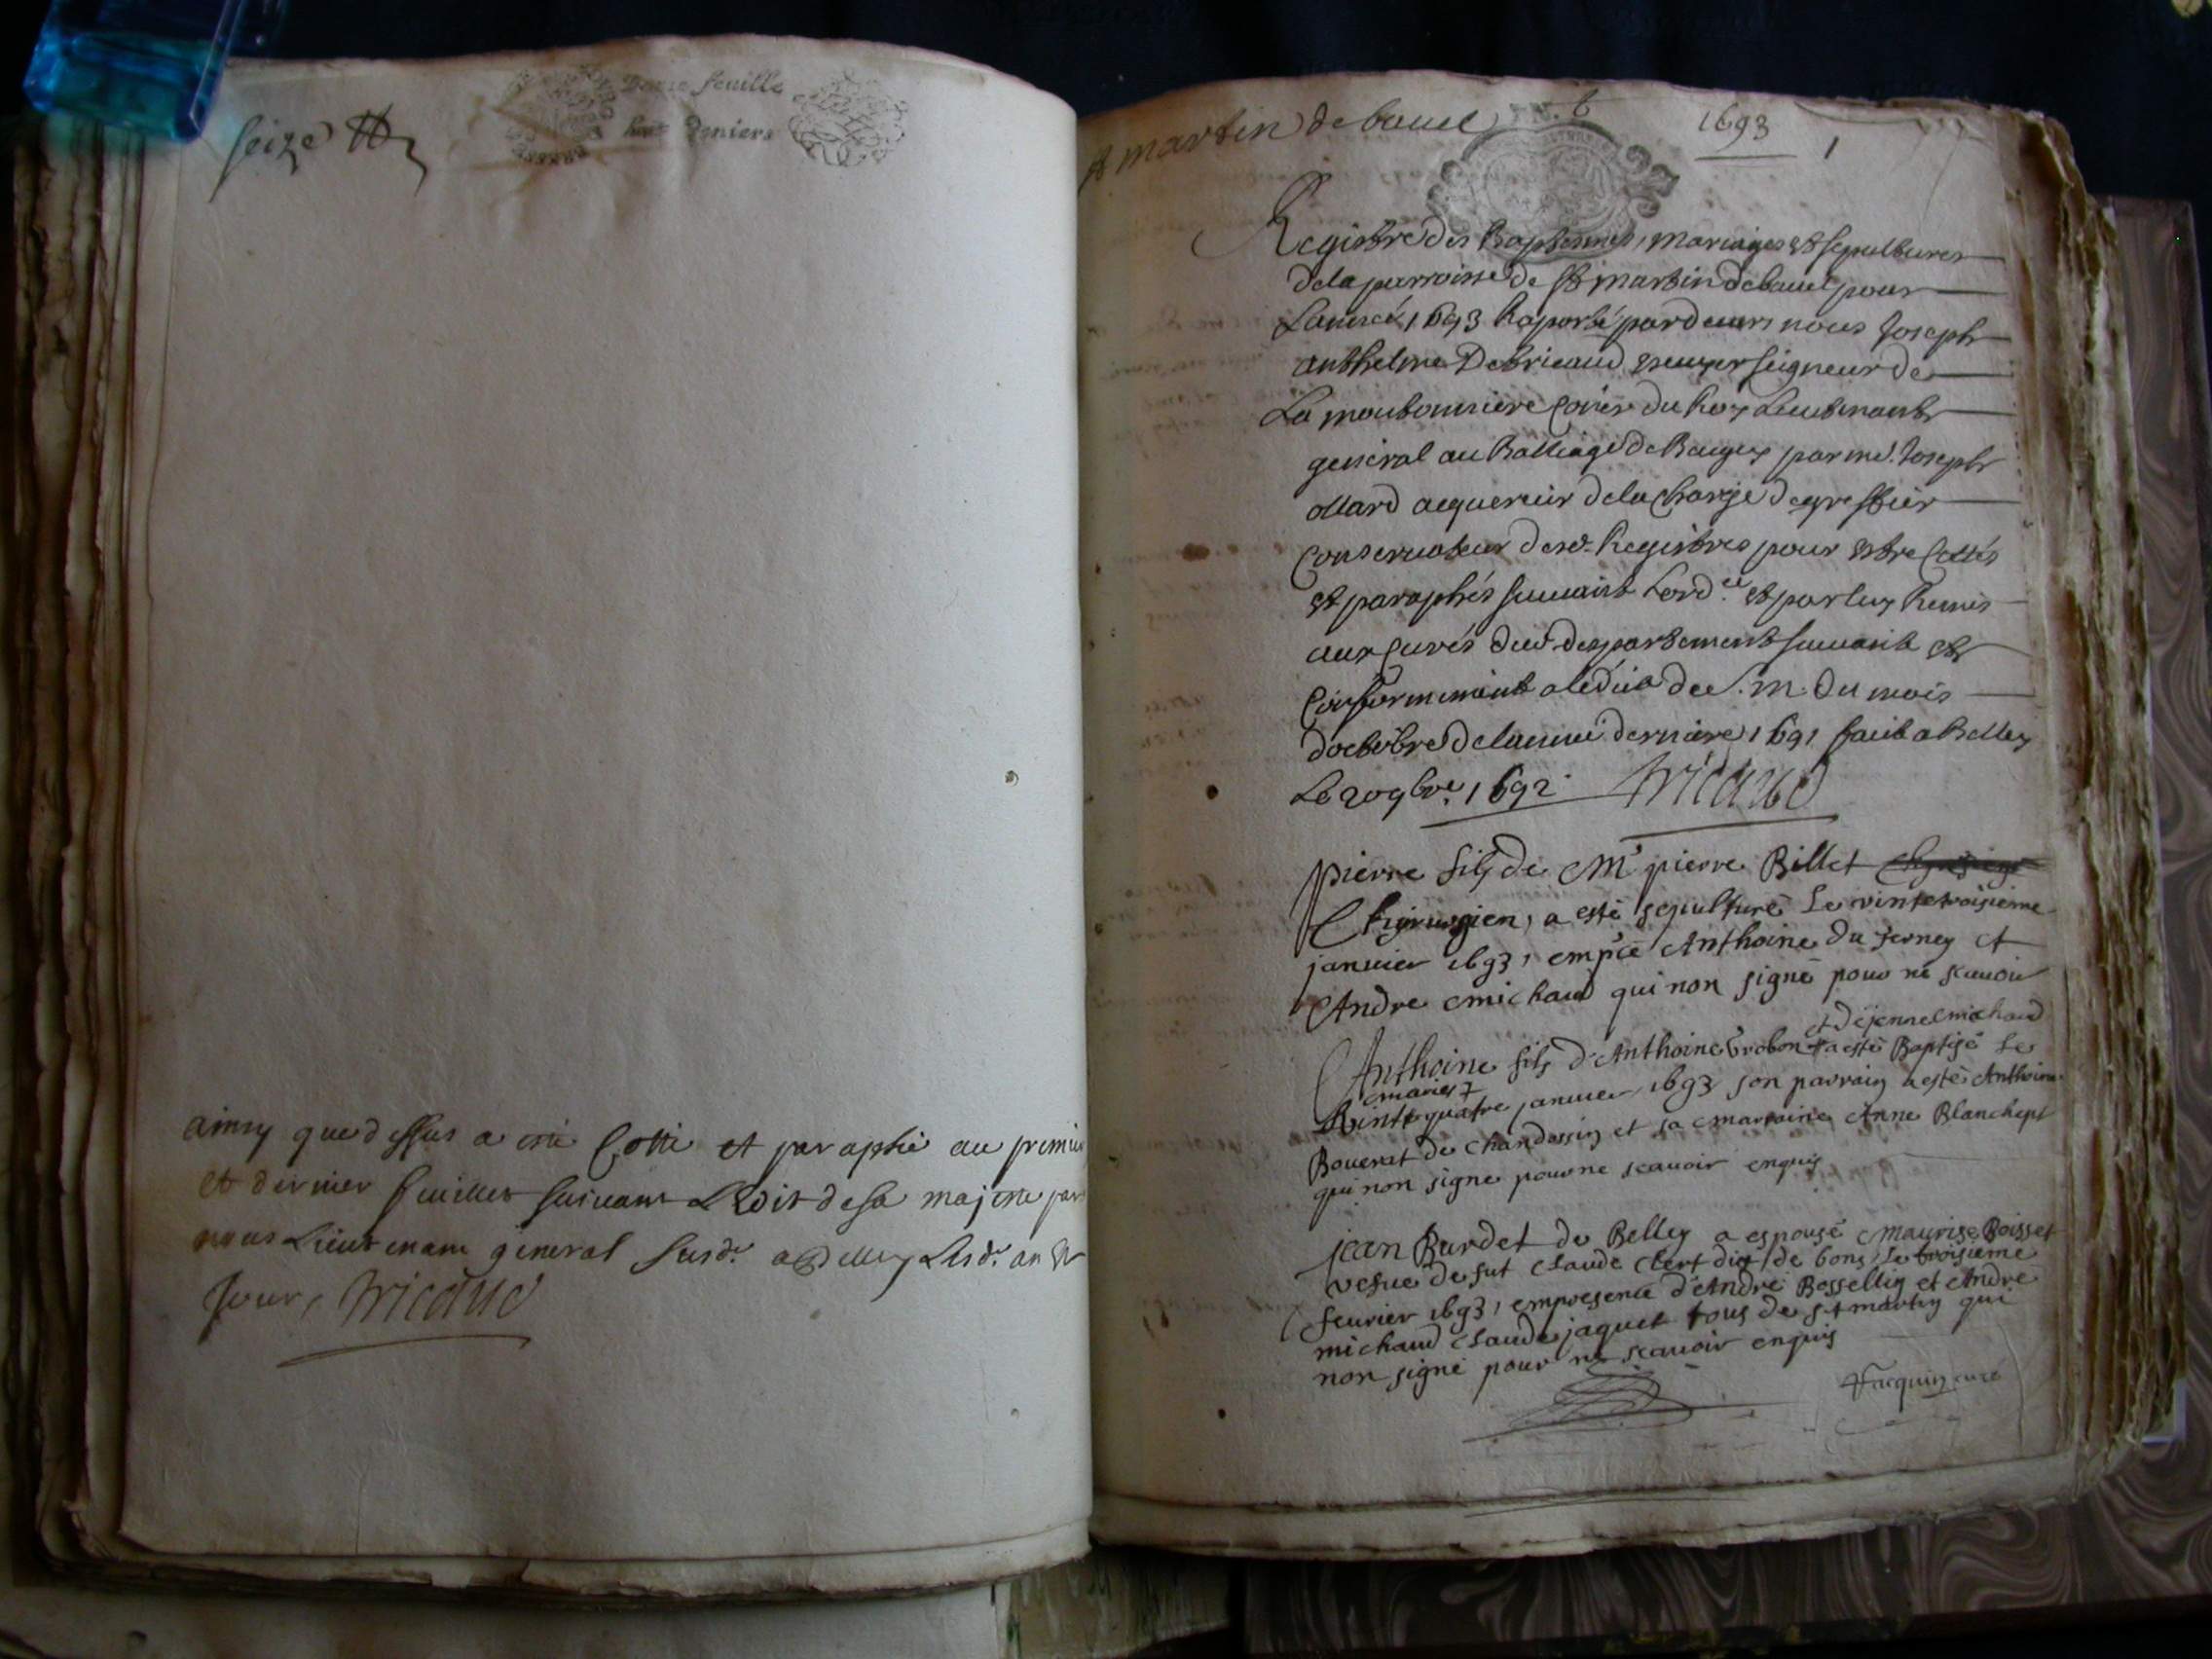 seize
Demie feuille
huit Deniers
ainsy que dessus a esté Cotté et paraphé au premier
et dernier feuillet suivant L'Edit de sa majesté par
nous Lieutenant general susd.t a Belley Lesd.t an et
Jour, Tricaud
St martin de bavel
1693
1
Registre des Baptesmes, mariages et sepultures
de la parroisse de St martin de bavel pour
Lannée 1693 Raporté pardevers nous Joseph
anthelme De tricaud escuyer seigneur de
La moutonniere Coner du Roy Lieutenant
general au Balliage de Bugey par me. Joseph
ollard acquereur de la charge de greffier
Conservateur desd. Registres pour estre Cottés
et paraphés suivant Lord.ce et par luy Remis
aux Curés dud. despartement suivant et
Conformement a ledict de S. M. du mois
doctobre de lannée derniere 1691 faict a Belley
Le 20 9bre. 1692 Tricaud
Pierre fils de Mr pierre Billet
Chirurgien, a esté sepulturé Le vintetroisieme
januier 1693, emp.ce Anthoine Du ferney et
Andre michaud qui non signé pour ne scauoir
et de jenne michaud
Anthoine fils d'Anthoine brobon a esté Baptisé Le
mariés
Vintequatre januier 1693 son parrain a esté Anthoine
Bouerat de Chandossin et sa marraine Anne Blanchept
qui non signe pour ne scauoir enquis
jean Burdet de Belley a espousé Maurise Boisset
vefue de fut Claude Clert dict de bons, Le troisieme
feurier 1693, empresence d'Andre Bessellin et Andre
michaud Claude jaquet tous de St martin qui
non signé pour ne scauoir enquis
Jacquin curé